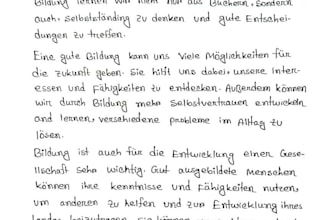 Bildung lernen wir nicht nur aus Büchern, sondern
auch, selbstständig zu denken und gute Entschei-
dungen zu treffen.
Eine gute Bildung kann uns viele Möglichkeiten für
die zukunft geben. Sie hilft uns dabei, unsere Inter-
essen und Fähigkeiten zu entdecken. Außerdem können
wir durch Bildung mehr Selbstvertrauen entwickeln
and lernen, verschiedene probleme im Alltag zu
lösen.
Bildung ist auch für die Entwicklung einer Gese-
llschaft sehr wichtig. Gut ausgebildete Menschen
können ihre kenntnisse und Fähigkeiten nutzen,
um anderen zu helfen und zur Entwicklung ihres